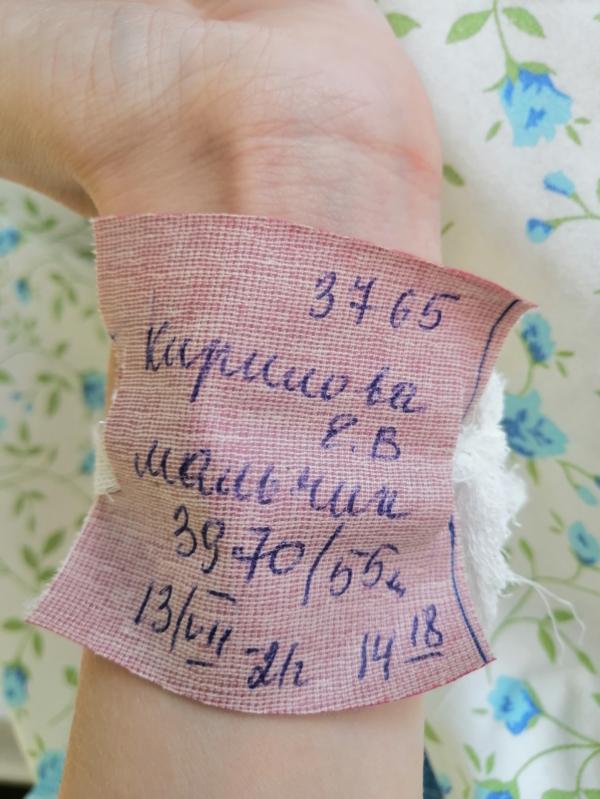 3765
Кирилова
Е.В
мальчик
3970/55
13/VII 21г 14 18